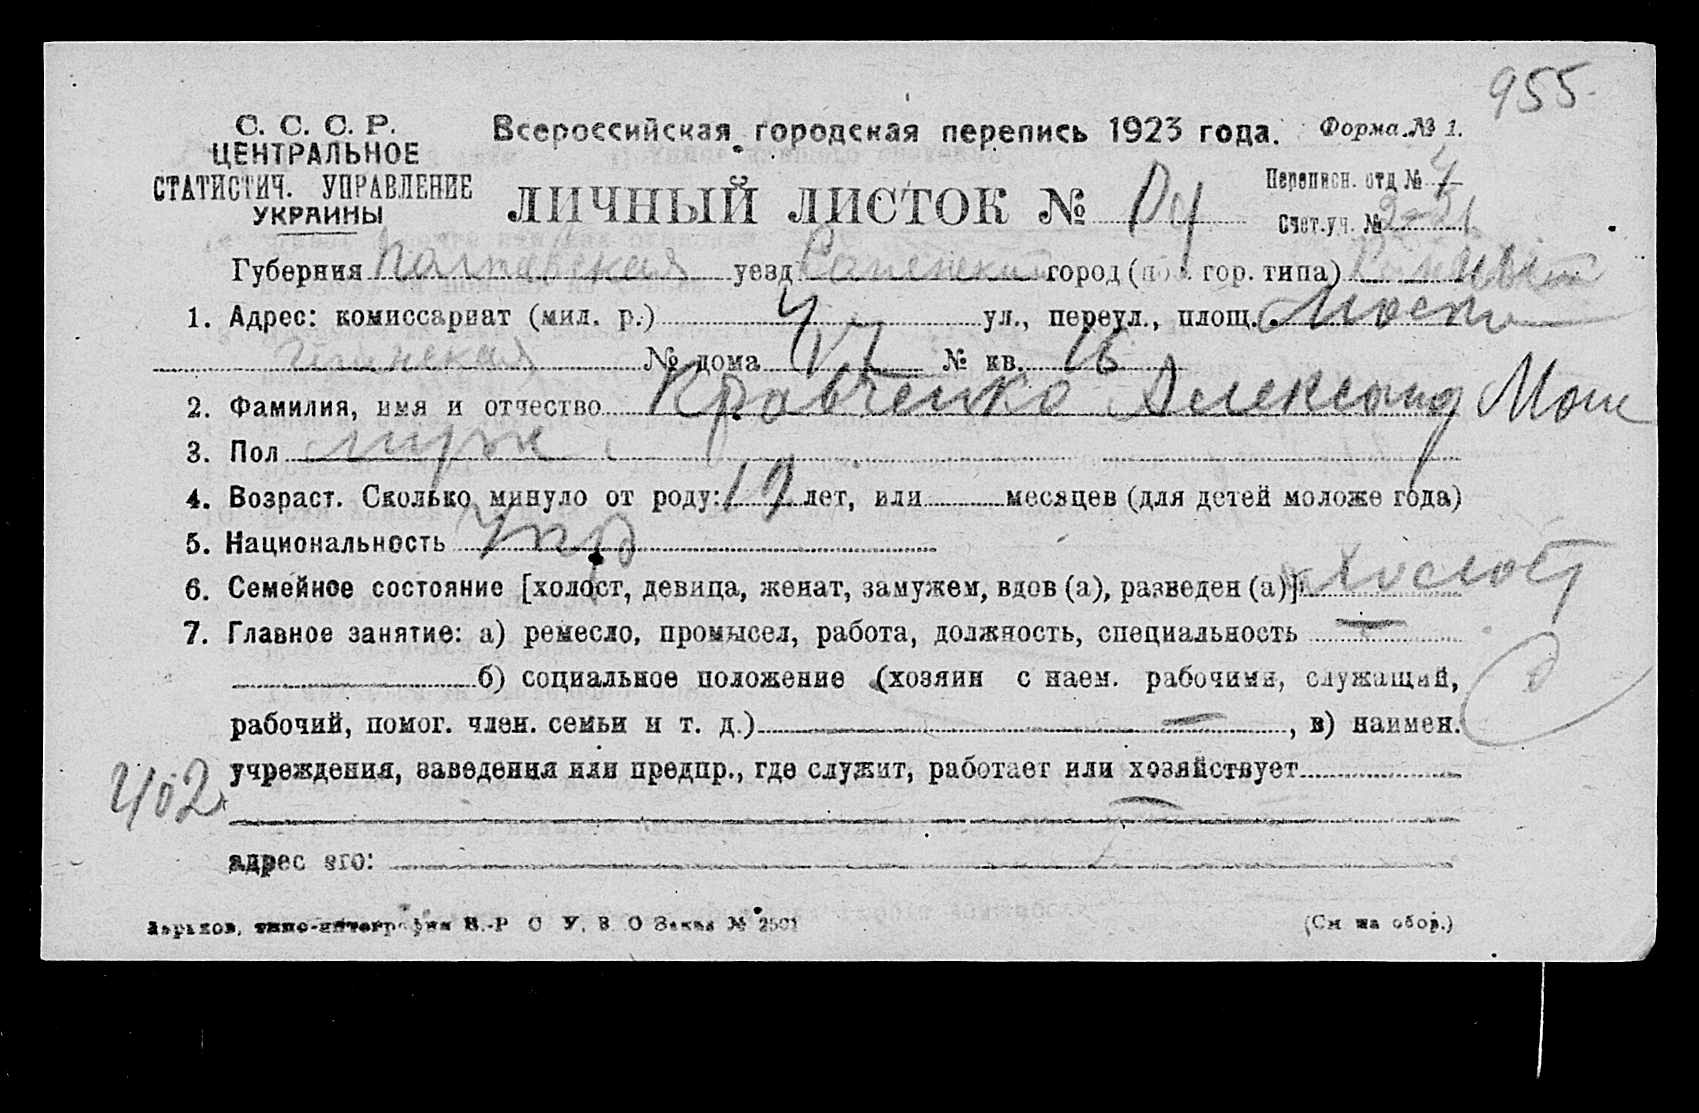 955.
С. С. С. Р.
ЦЕНТРАЛЬНОЕ
СТАТИСТИЧ. УПРАВЛЕНИЕ
УКРАИНЫ
Всероссийская городская перепись 1923 года. Форма № 1.
ЛИЧНЫЙ ЛИСТОК №
Переписн. отд № 4
Счет.уч. №
Губерния Полтавская уезд город (пос. гор. типа)
1. Адрес: комиссариат (мил. р.) 4 ул., переул., площ.
№ дома № кв. 16
2. Фамилия, имя и отчество Кравченко Александ
3. Пол муж
4. Возраст. Сколько минуло от роду: 19 лет, или месяцев (для детей моложе года)
5. Национальность Укр
6. Семейное состояние [холост, девица, женат, замужем, вдов (а), разведен (а)] Холост
7. Главное занятие: а) ремесло, промысел, работа, должность, специальность —
б) социальное положение (хозяин с наем. рабочими, служащий,
рабочий, помог. член. семьи и т. д.) — , в) наимен.
учреждения, заведения или предпр., где служит, работает или хозяйствует
402
адрес его:
Харьков, типо-литография В.-Р С У. В О Заказ № 2501 (См на обор.)